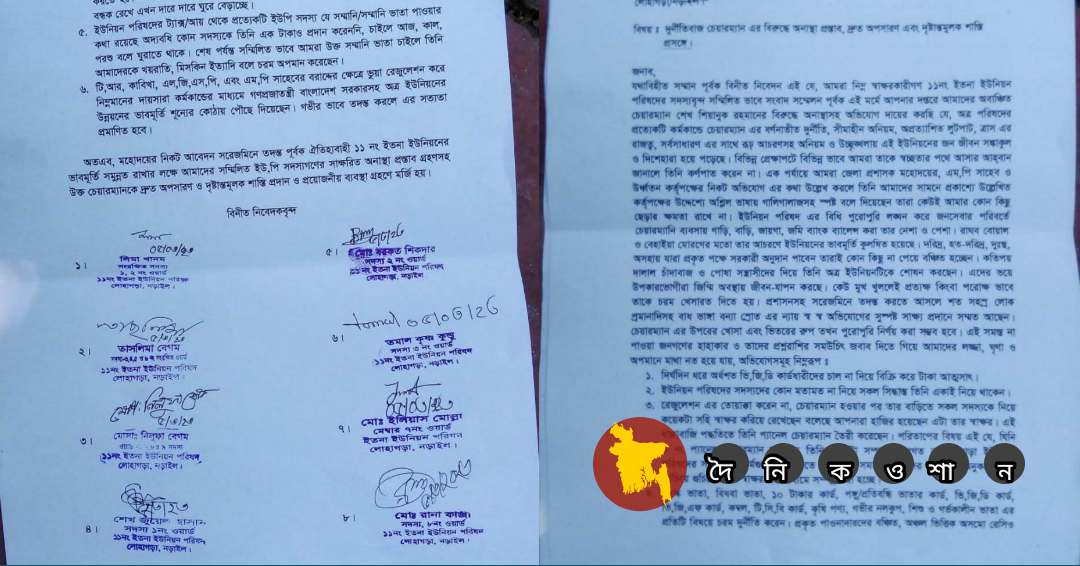 বন্ধক রেখে এখন দারে দারে ঘুরে বেড়াচ্ছে।
৫. ইউনিয়ন পরিষদের ট্যাক্স/আয় থেকে প্রত্যেকটি ইউপি সদস্য যে সম্মানি/সম্মানি ভাতা পাওয়ার
কথা রয়েছে অদ্যবধি কোন সদস্যকে তিনি এক টাকাও প্রদান করেননি, চাইলে আজ, কাল,
পরশু বলে ঘুরাতে থাকে। শেষ পর্যন্ত সম্মিলিত ভাবে আমরা উক্ত সম্মানি ভাতা চাইলে তিনি
আমাদেরকে খয়রাতি, মিসকিন ইত্যাদি বলে চরম অপমান করেছেন।
৬. টি,আর, কাবিখা, এল,জি,এস,পি, এবং এম,পি সাহেবের বরাদ্দের ক্ষেত্রে ভুয়া রেজুলেশন করে
নিম্নমানের দায়সারা কর্মকান্ডের মাধ্যমে গণপ্রজাতন্ত্রী বাংলাদেশ সরকারসহ অত্র ইউনিয়নের
উন্নয়নের ভাবমূর্তি শূন্যের কোঠায় পৌছে দিয়েছেন। গভীর ভাবে তদন্ত করলে এর সত্যতা
প্রমাণিত হবে।
অতএব, মহোদয়ের নিকট আবেদন সরেজমিনে তদন্ত পূর্বক ঐতিহ্যবাহী ১১ নং ইতনা ইউনিয়নের
ভাবমূর্তি সমুন্নত রাখার লক্ষে আমাদের সম্মিলিত ইউ,পি সদস্যগণের সাক্ষরিত অনাস্থা প্রস্তাব গ্রহণসহ
উক্ত চেয়ারম্যানকে দ্রুত অপসারণ ও দৃষ্টান্তমূলক শাস্তি প্রদান ও প্রয়োজনীয় ব্যবস্থা গ্রহণে মর্জি হয়।
বিনীত নিবেদকবৃন্দ
১।
লিমা খানম
সংরক্ষিত সদস্য
১, ২ নং ওয়ার্ড
১১নং ইতনা ইউনিয়ন পরিষদ
লোহাগড়া, নড়াইল।
৫।
মোঃ বরকত শিকদার
সদস্য ২ নং ওয়ার্ড
১১নং ইতনা ইউনিয়ন পরিষদ
লোহাগড়া, নড়াইল।
২।
তাসলিমা বেগম
১১নং ইতনা ইউনিয়ন পরিষদ
লোহাগড়া, নড়াইল।
৬।
তমাল কৃষ্ণ কুন্ডু
সদস্য ৩ নং ওয়ার্ড
১১নং ইতনা ইউনিয়ন পরিষদ
লোহাগড়া, নড়াইল।
৩।
মোসাঃ নিলুফা বেগম
১১নং ইতনা ইউনিয়ন পরিষদ
লোহাগড়া, নড়াইল।
৭।
মোঃ ইলিয়াস মোল্যা
মেম্বার ৭নং ওয়ার্ড
ইতনা ইউনিয়ন পরিষদ
লোহাগড়া, নড়াইল।
৪।
সদস্য ১নং ওয়ার্ড
১১নং ইতনা ইউনিয়ন পরিষদ
লোহাগড়া, নড়াইল।
৮।
মোঃ রানা কাজী
সদস্য, ৮নং ওয়ার্ড
১১নং ইতনা ইউনিয়ন পরিষদ
লোহাগড়া, নড়াইল।
বিষয় : দুর্নীতিবাজ চেয়ারম্যান এর বিরুদ্ধে অনাস্থা প্রস্তাব, দ্রুত অপসারণ এবং দৃষ্টান্তমূলক শাস্তি
প্রসঙ্গে।
জনাব,
যথাবিহীত সম্মান পূর্বক বিনীত নিবেদন এই যে, আমরা নিম্ন স্বাক্ষরকারীগণ ১১নং ইতনা ইউনিয়ন
পরিষদের সদস্যবৃন্দ সম্মিলিত ভাবে সংবাদ সম্মেলন পূর্বক এই মর্মে আপনার দপ্তরে আমাদের অবাঞ্চিত
চেয়ারম্যান শেখ শিয়ানুক রহমানের বিরুদ্ধে অনাস্থাসহ অভিযোগ দায়ের করছি যে, অত্র পরিষদের
প্রত্যেকটি কর্মকান্ডে চেয়ারম্যান এর বর্ণনাতীত দুর্নীতি, সীমাহীন অনিয়ম, অপ্রত্যাশিত লুটপাট, ত্রাস এর
রাজত্ব, সর্বসাধারণ এর সাথে রূঢ় আচরণসহ অনিয়ম ও উচ্ছৃঙ্খলায় এই ইউনিয়নের জন জীবন সঙ্কাকুল
ও দিশেহারা হয়ে পড়েছে। বিভিন্ন প্রেক্ষাপটে বিভিন্ন ভাবে আমরা তাকে স্বচ্ছতার পথে আসার আহবান
জানালে তিনি কর্ণপাত করেন না। এক পর্যায়ে আমরা জেলা প্রশাসক মহোদয়ের, এম,পি সাহেব ও
উর্ধ্বতন কর্তৃপক্ষের নিকট অভিযোগ এর কথা উল্লেখ করলে তিনি আমাদের সামনে প্রকাশ্যে উল্লেখিত
কর্তৃপক্ষের উদ্দেশ্যে অশ্লিল ভাষায় গালিগালাজসহ স্পষ্ট বলে দিয়েছেন তারা কেউই আমার কোন কিছু
ছেড়ার ক্ষমতা রাখে না। ইউনিয়ন পরিষদ এর বিধি পুরোপুরি লঙ্ঘন করে জনসেবার পরিবর্তে
চেয়ারম্যানি ব্যবসায় গাড়ি, বাড়ি, জায়গা, জমি ব্যাংক ব্যালেন্স করা তার নেশা ও পেশা। রাঘব বোয়াল
ও বেহাইয়া মোরগের মতো তার আচরণে ইউনিয়নের ভাবমূর্তি কুলষিত হয়েছে। দরিদ্র, হত-দরিদ্র, দুঃস্থ,
অসহায় যারা প্রকৃত পক্ষে সরকারী অনুদান পাবেন তারাই কোন কিছু না পেয়ে বঞ্চিত হচ্ছেন। কতিপয়
দালাল চাঁদাবাজ ও পোষা সন্ত্রাসীদের দিয়ে তিনি অত্র ইউনিয়নটিকে শোষন করছেন। এদের ভয়ে
উপকারভোগীরা জিম্মি অবস্থায় জীবন-যাপন করছে। কেউ মুখ খুললেই প্রত্যক্ষ কিংবা পরোক্ষ ভাবে
তাকে চরম খেসারত দিতে হয়। প্রশাসনসহ সরেজমিনে তদন্ত করতে আসলে শত সহস্র লোক
প্রমানাদিসহ বাধ ভাঙ্গা বন্যা স্রোত এর ন্যায় স্ব স্ব অভিযোগের সুস্পষ্ট সাক্ষ্য প্রদানে সম্মত আছেন।
চেয়ারম্যান এর উপরের খোসা এবং ভিতরের রুপ তখন পুরোপুরি নির্ণয় করা সম্ভব হবে। এই সমস্ত না
পাওয়া জনগণের হাহাকার ও তাদের প্রশ্নরাশির সমউচিৎ জবাব দিতে গিয়ে আমাদের লজ্জা, ঘৃণা ও
অপমানে মাথা নত হয়ে যায়, অভিযোগসমূহ নিম্নরূপ ঃ
১. দির্ঘদিন ধরে অর্ধশত ভি,জি,ডি কার্ডধারীদের চাল না দিয়ে বিক্রি করে টাকা আত্মসাৎ।
২. ইউনিয়ন পরিষদের সদস্যদের কোন মতামত না নিয়ে সকল সিদ্ধান্ত তিনি একাই নিয়ে থাকেন।
৩. রেজুলেশন এর তোয়াক্কা করেন না, চেয়ারম্যান হওয়ার পর তার বাড়িতে সকল সদস্যকে নিয়ে
কয়েকটা সহি স্বাক্ষর করিয়ে রেখেছেন বলেছে আপনারা হাজির হয়েছেন এটা তার স্বাক্ষর। এই
পদ্ধতিতে তিনি প্যানেল চেয়ারম্যান তৈরী করেছেন। পরিতাপের বিষয় এই যে, যিনি
ভাতা, বিধবা ভাতা, ১০ টাকার কার্ড, পঙ্গু/প্রতিবন্ধি ভাতার কার্ড, ভি,জি,ডি কার্ড,
ভি,জি,এফ কার্ড, কম্বল, টি,সি,বি কার্ড, কৃষি পণ্য, গভীর নলকুপ, শিশু ও গর্ভকালীন ভাতা এর
প্রতিটি বিষয়ে চরম দুর্নীতি করেন। প্রকৃত পাওনাদারদের বঞ্চিত, অঞ্চল ভিত্তিক অসমো রেসিও
দৈনিক ওশান